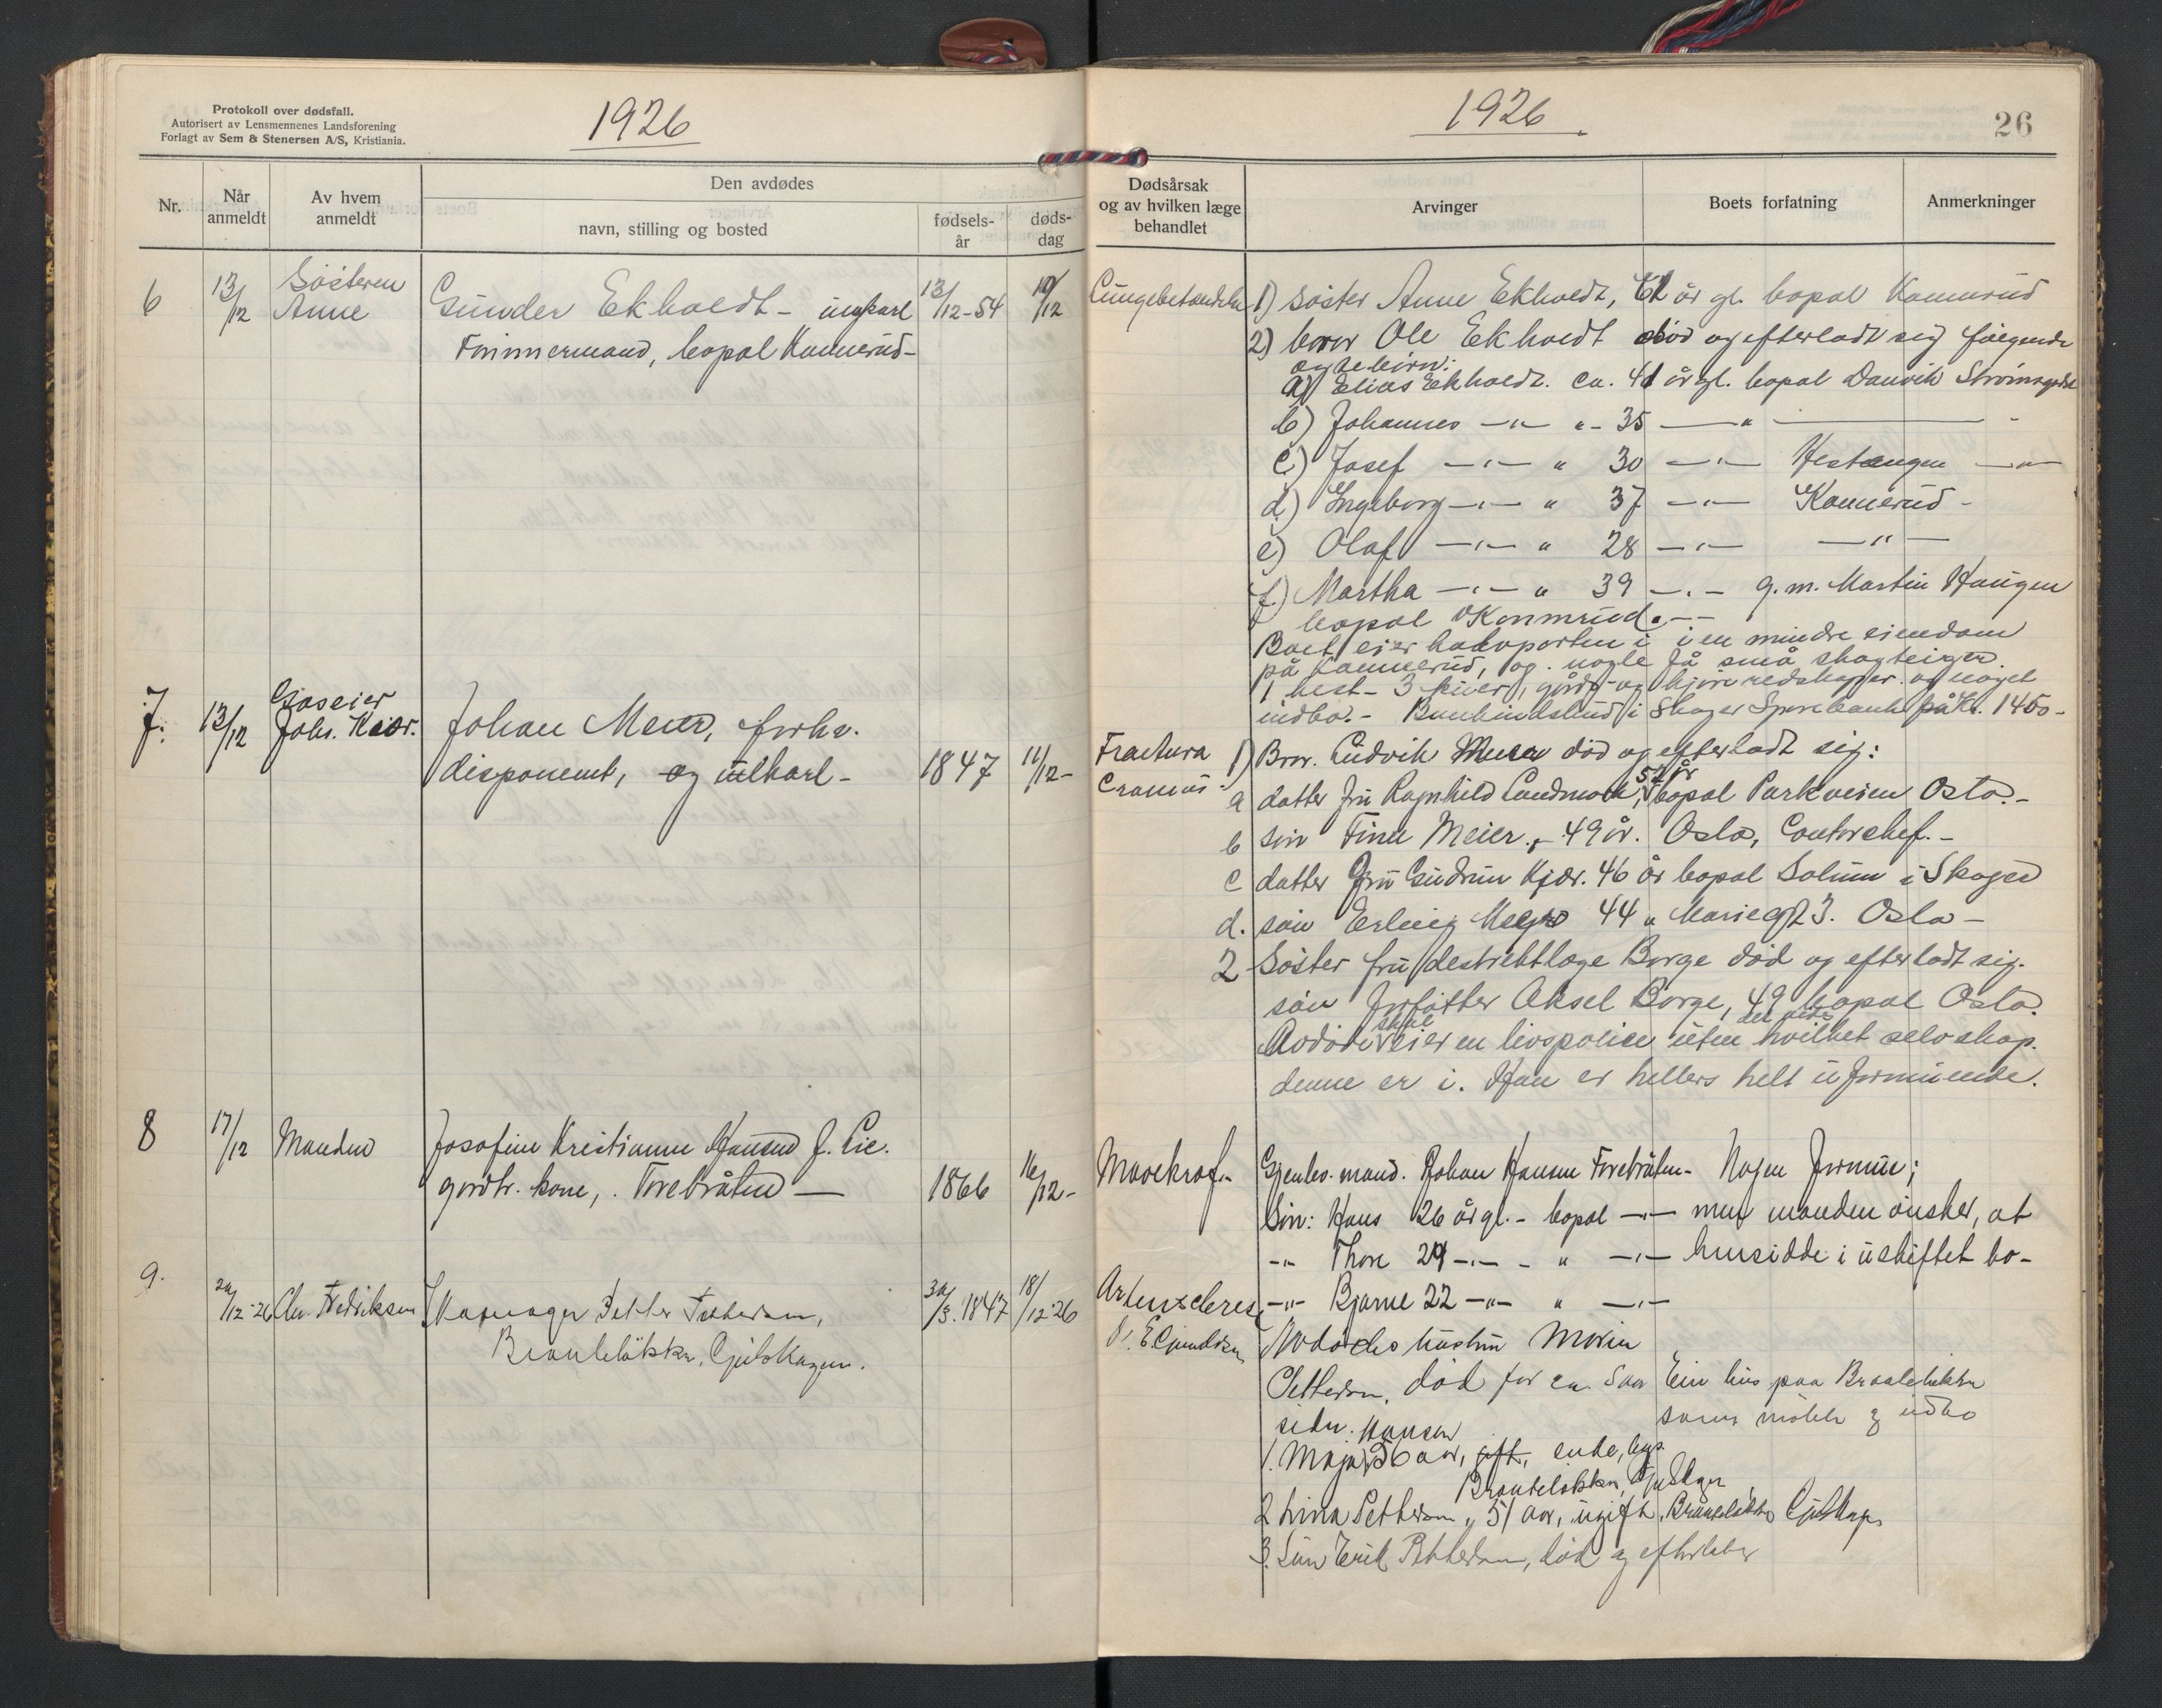 Protokoll over dødsfall.
Autorisert av Lensmennenes Landsforening
Forlagt av Sem & Stenersen A/S, Kristiania.
1926
Nr.
Når anmeldt
Av hvem anmeldt
Den avdødes
navn, stilling og bosted
fødsels-år
døds-dag
6 13/12 Søsteren Anne
Gunder Ekholdt - ungkarl 13/12-54 10/12
Tømmermand, bopæl Konnerud-
7. 13/12 Gaseier Johs. Kiær.
Johan Meier, forhv.
disponent, og ungkarl - 1847 11/12-
8 17/12 Manden
Josefine Kristianne Hansen f. Lie.
gårdbr. kone, Torebråten — 1866 16/12-
9. 20/12-26 Chr. Fredriksen
Skomager Petter Pettersen, 30/3.1847 18/12-26
Brandeløkken, Gjulskogen.
1926
26
Dødsårsak og av hvilken læge behandlet
Arvinger
Boets forfatning
Anmerkninger
Lungebetændelse
1) søster Anne Ekholdt, år gl. bopæl Konnerud
2) bror Ole Ekholdt død og efterladt sig følgende
ægtebørn:
a) Elias Ekholdt. ca. 41 år gl. bopæl Danvik Strømsgodset
b) Johannes —"— "- 35 —"—
c) Josef —"— " 30 —"— Hestengen —"—
d) Ingeborg —"— " 37 —"— Konnerud -
e) Olaf —"— " 28 —"— —"—
f) Martha —"— " 39 —"— g.m. Martin Haugen
bopæl Konnerud. —
Boet eier halvparten i en mindre eiendom
på Konnerud, og nogle få små skogteiger.
1 hest - 3 kuer, gårds- og kjøreredskaper og noget
indbo. - Bankindskud i Skoger Sparebank på Kr. 1400-
Fractura Cranius.
1) Bror. Ludvik Meier død og efterladt sig:
a datter fru Ragnhild Landmark, 51 år bopæl Parkveien Oslo. -
b søn Finn Meier, - 49 år. Oslo, Contorchef. -
c datter Fru Gudrun Kjær. 46 år bopæl Solum i Skoger
d. søn Erling Meyer 44 " Mariegt 23. Oslo -
2 Søster fru destriktlæge Borge død og efterladt sig.
søn forfatter Aksel Borge, 49 bopæl Oslo.
Avdøde skal eie en livspolice uten det vides hvilket selvskap.
denne er i. Han er hellers helt uformuende.
Mavekræft
Gjenlev. mand. Johan Hansen Torebråten - Nogen formue;
Søn: Hans 26 år gl. - bopæl —"— men manden ønsker, at
-"- Thore 24 —"— - " —"— hensidde i uskiftet bo -
-"- Bjarne 22 —"— " —"—
Avdødes hustru Maren
Pettersen, død for ca. 5 aar
siden.
Ein hus paa Brandeløkken
samt møbler og indbo
1. Maja Hansen 56 aar, gift, enke, bop.
Brandeløkken, Gjulskogen
2 Lina Pettersen, 51 aar, ugift, Brandeløkken Gjulskogen
3. Søn Erik Pettersen, død og efterlater